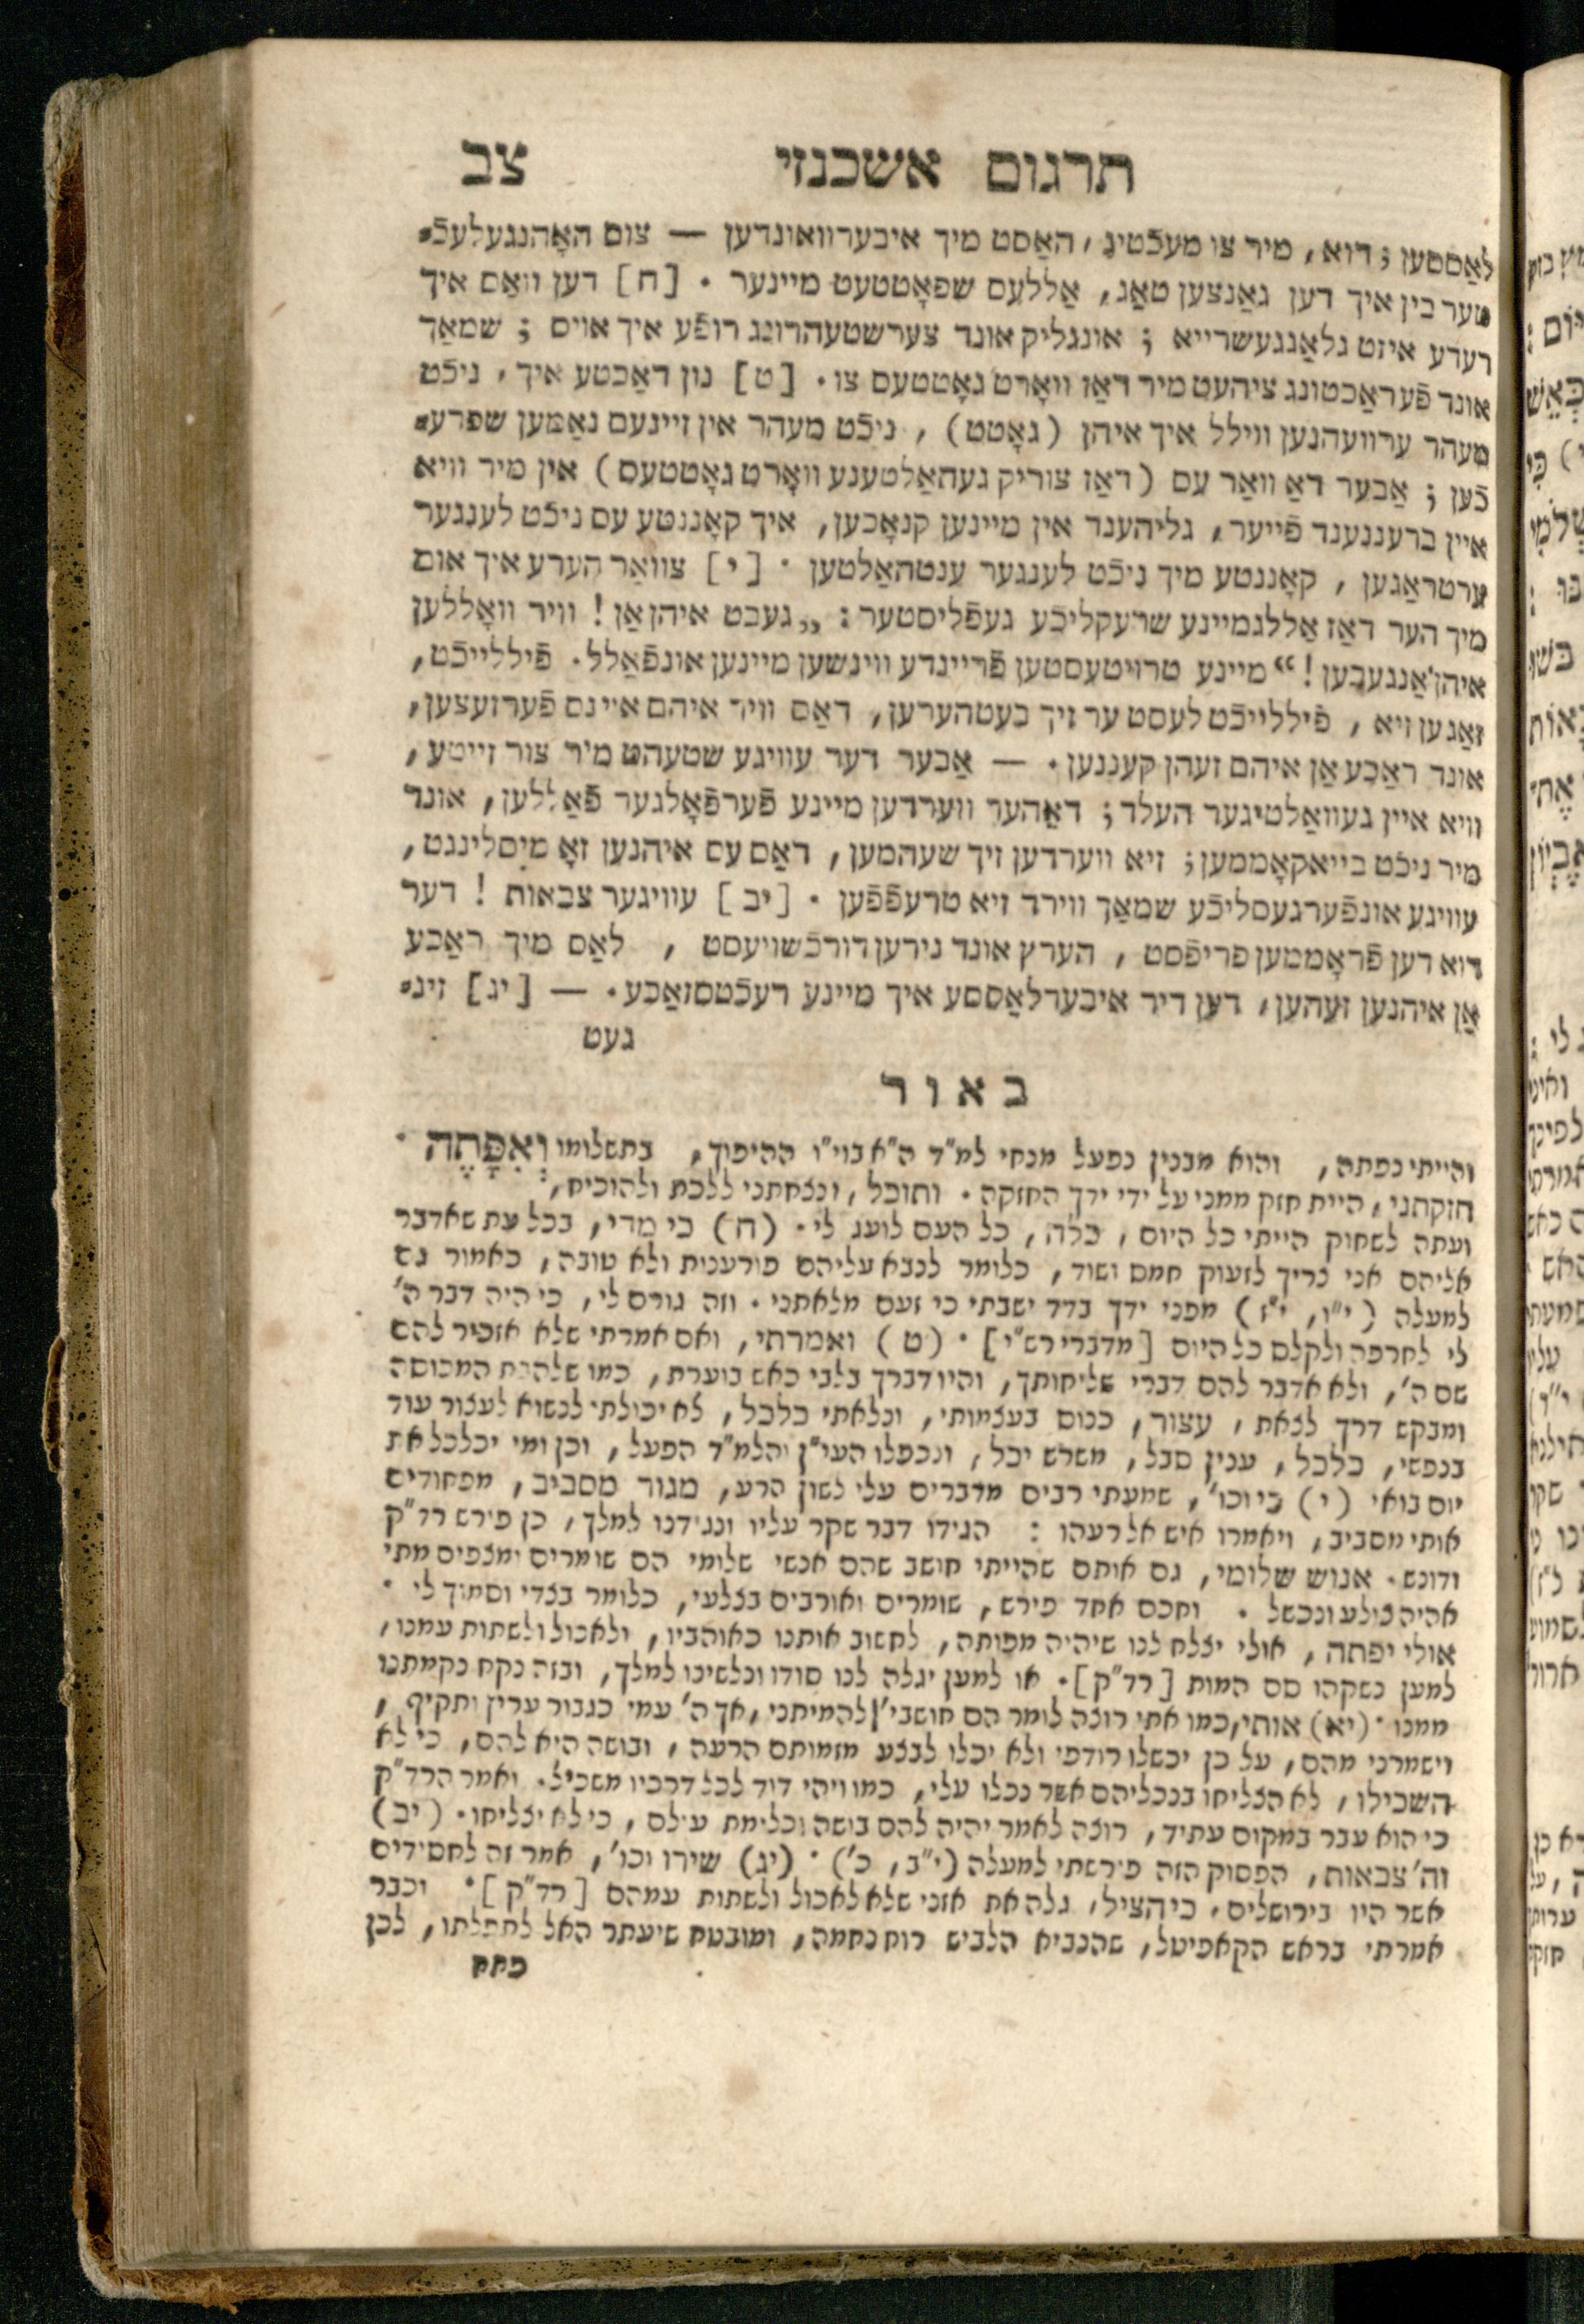 תרגום אשכנזי צב
לאַססען; דוא, מיר צו מעכֿטיג, האַסט מיך איבערוואונדען — צום האָהנגעלעכֿ⸗
טער בין איך דען גאַנצען טאַג, אַללעס שפּאָטטעט מיינער. [ח] דען וואַס איך
רעדע איזט גלאַגגעשרייא; אונגליק אונד צערשטעהרונג רופֿע איך אויס; שמאַך
אונד פֿעראַכטונג ציהעט מיר דאַז וואָרט גאָטטעס צו. [ט] נון דאַכטע איך, ניכֿט
מעהר ערוועהנען ווילל איך איהן (גאָטט), ניכֿט מעהר אין זיינעם נאַמען שפרע⸗
כֿען; אַבער דאַ וואַר עס (דאַז צוריק געהאַלטענע וואָרט גאָטטעס) אין מיר וויא
איין ברעננענד פֿייער, גליהענד אין מיינען קנאָכען, איך קאָננטע עס ניכֿט לענגער
ערטראַגען, קאָננטע מיך ניכֿט לענגער ענטהאַלטען. [י] צוואַר הערע איך אום
מיך הער דאַז אַללגמיינע שרעקליכֿע געפֿליסטער: „געבט איהן אַן! וויר וואָללען
איהן אַנגעבען!“ מיינע טרויטעסטען פֿריינדע ווינשען מיינען אונפֿאַלל. פֿיללייכֿט,
זאַגען זיא, פֿיללייכֿט לעסט ער זיך בעטהערען, דאַס וויר איהם איינס פֿערזעצען,
אונד ראַכע אַן איהם זעהן קעננען. — אַבער דער עוויגע שטעהט מיר צור זייטע,
וויא איין געוואַלטיגער העלד; דאַהער ווערדען מיינע פֿערפֿאָלגער פֿאַללען, אונד
מיר ניכֿט בייאקאָממען; זיא ווערדען זיך שעהמען, דאַס עס איהנען זאָ מיסלינגט,
עוויגע אונפֿערגעסליכֿע שמאַך ווירד זיא טרעפֿפֿען. [יב] עוויגער צבאות! דער
דוא דען פֿראָממען פריפֿסט, הערץ אונד נירען דורכֿשויעסט, לאַס מיך ראַכע
אַן איהנען זעהען, דען דיר איבערלאַססע איך מיינע רעכֿטסזאַכע. — [יג] זינ⸗
געט
באור
והייתי נפתה, והוא מבנין נפעל מנחי למ״ד ה״א בוי״ו ההיפוך, בתשלומו וְאִפָּתֶה.
חזקתני, היית חזק ממני על ידי ידך החזקה. ותוכל, ונצחתני ללכת ולהוכיח,
ועתה לשחוק הייתי כל היום, כלה, כל העם לועג לי. (ח) כי מדי, בכל עת שאדבר
אליהם אני צריך לזעוק חמס ושוד, כלומר לנבא עליהם פורענית ולא טובה, כאמור גם
למעלה (י״ו, י״ז) מפני ידך בדד ישבתי כי זעם מלאתני. וזה גורם לי, כי היה דבר ה׳
לי לחרפה ולקלס כל היום [מדברי רש״י]. (ט) ואמרתי, ואם אמרתי שלא אזכיר להם
שם ה׳, ולא אדבר להם דברי שליחותך, והיו דברך בלבי כאש בוערת, כמו שלהבת המכוסה
ומבקש דרך לצאת, עצור, כנוס בעצמותי, ונלאתי כלכל, לא יכולתי לנשוא לעצור עוד
בנפשי, כלכל, ענין סבל, משרש יכל, ונכפלו העי״ן והלמ״ד הפעל, וכן ומי יכלכל את
יום בואי (י) כי וכו׳, שמעתי רבים מדברים עלי לשון הרע, מגור מסביב, מפחודים
אותי מסביב, ויאמרו איש אל רעהו: הגידו דבר שקר עליו ונגידנו למלך, כן פירש רד״ק
ודונש. אנוש שלומי, גם אותם שהייתי חושב שהם אנשי שלומי הם שומרים ומצפים מתי
אהיה צולע ונכשל. וחכם אחד פירש, שומרים ואורבים בצלעי, כלומר בצדי וסמוך לי.
אולי יפתה, אולי יצלח לנו שיהיה מפותה, לחשוב אותנו כאוהביו, ולאכול ולשתות עמנו,
למען נשקהו סם המות [רד״ק]. או למען יגלה לנו סודו ונלשינו למלך, ובזה נקח נקמתנו
ממנו. (יא) אותי, כמו אתי רוצה לומר הם חושבי׳ן להמיתני, אך ה׳ עמי כגבור עריץ ותקיף,
וישמרני מהם, על כן יכשלו רודפי ולא יכלו לבצע מזמותם הרעה, ובושה היא להם, כי לא
השכילו, לא הצליחו בנכליהם אשר נכלו עלי, כמו ויהי דוד לכל דרכיו משכיל. ואמר הרד״ק
כי הוא עבר במקום עתיד, רוצה לאמר יהיה להם בושה וכלימת עולם, כי לא יצליחו. (יב)
וה׳ צבאות, הפסוק הזה פירשתי למעלה (י״ב, כ׳). (יג) שירו וכו׳, אמר זה לחסידים
אשר היו בירושלים, כי הציל, גלה את אזני שלא לאכול ולשתות עמהם [רד״ק]. וכבר
אמרתי בראש הקאפיטל, שהנביא הלביש רוח נחמה, ומובטח שיעתר האל לתפלתו, לכן
פתח